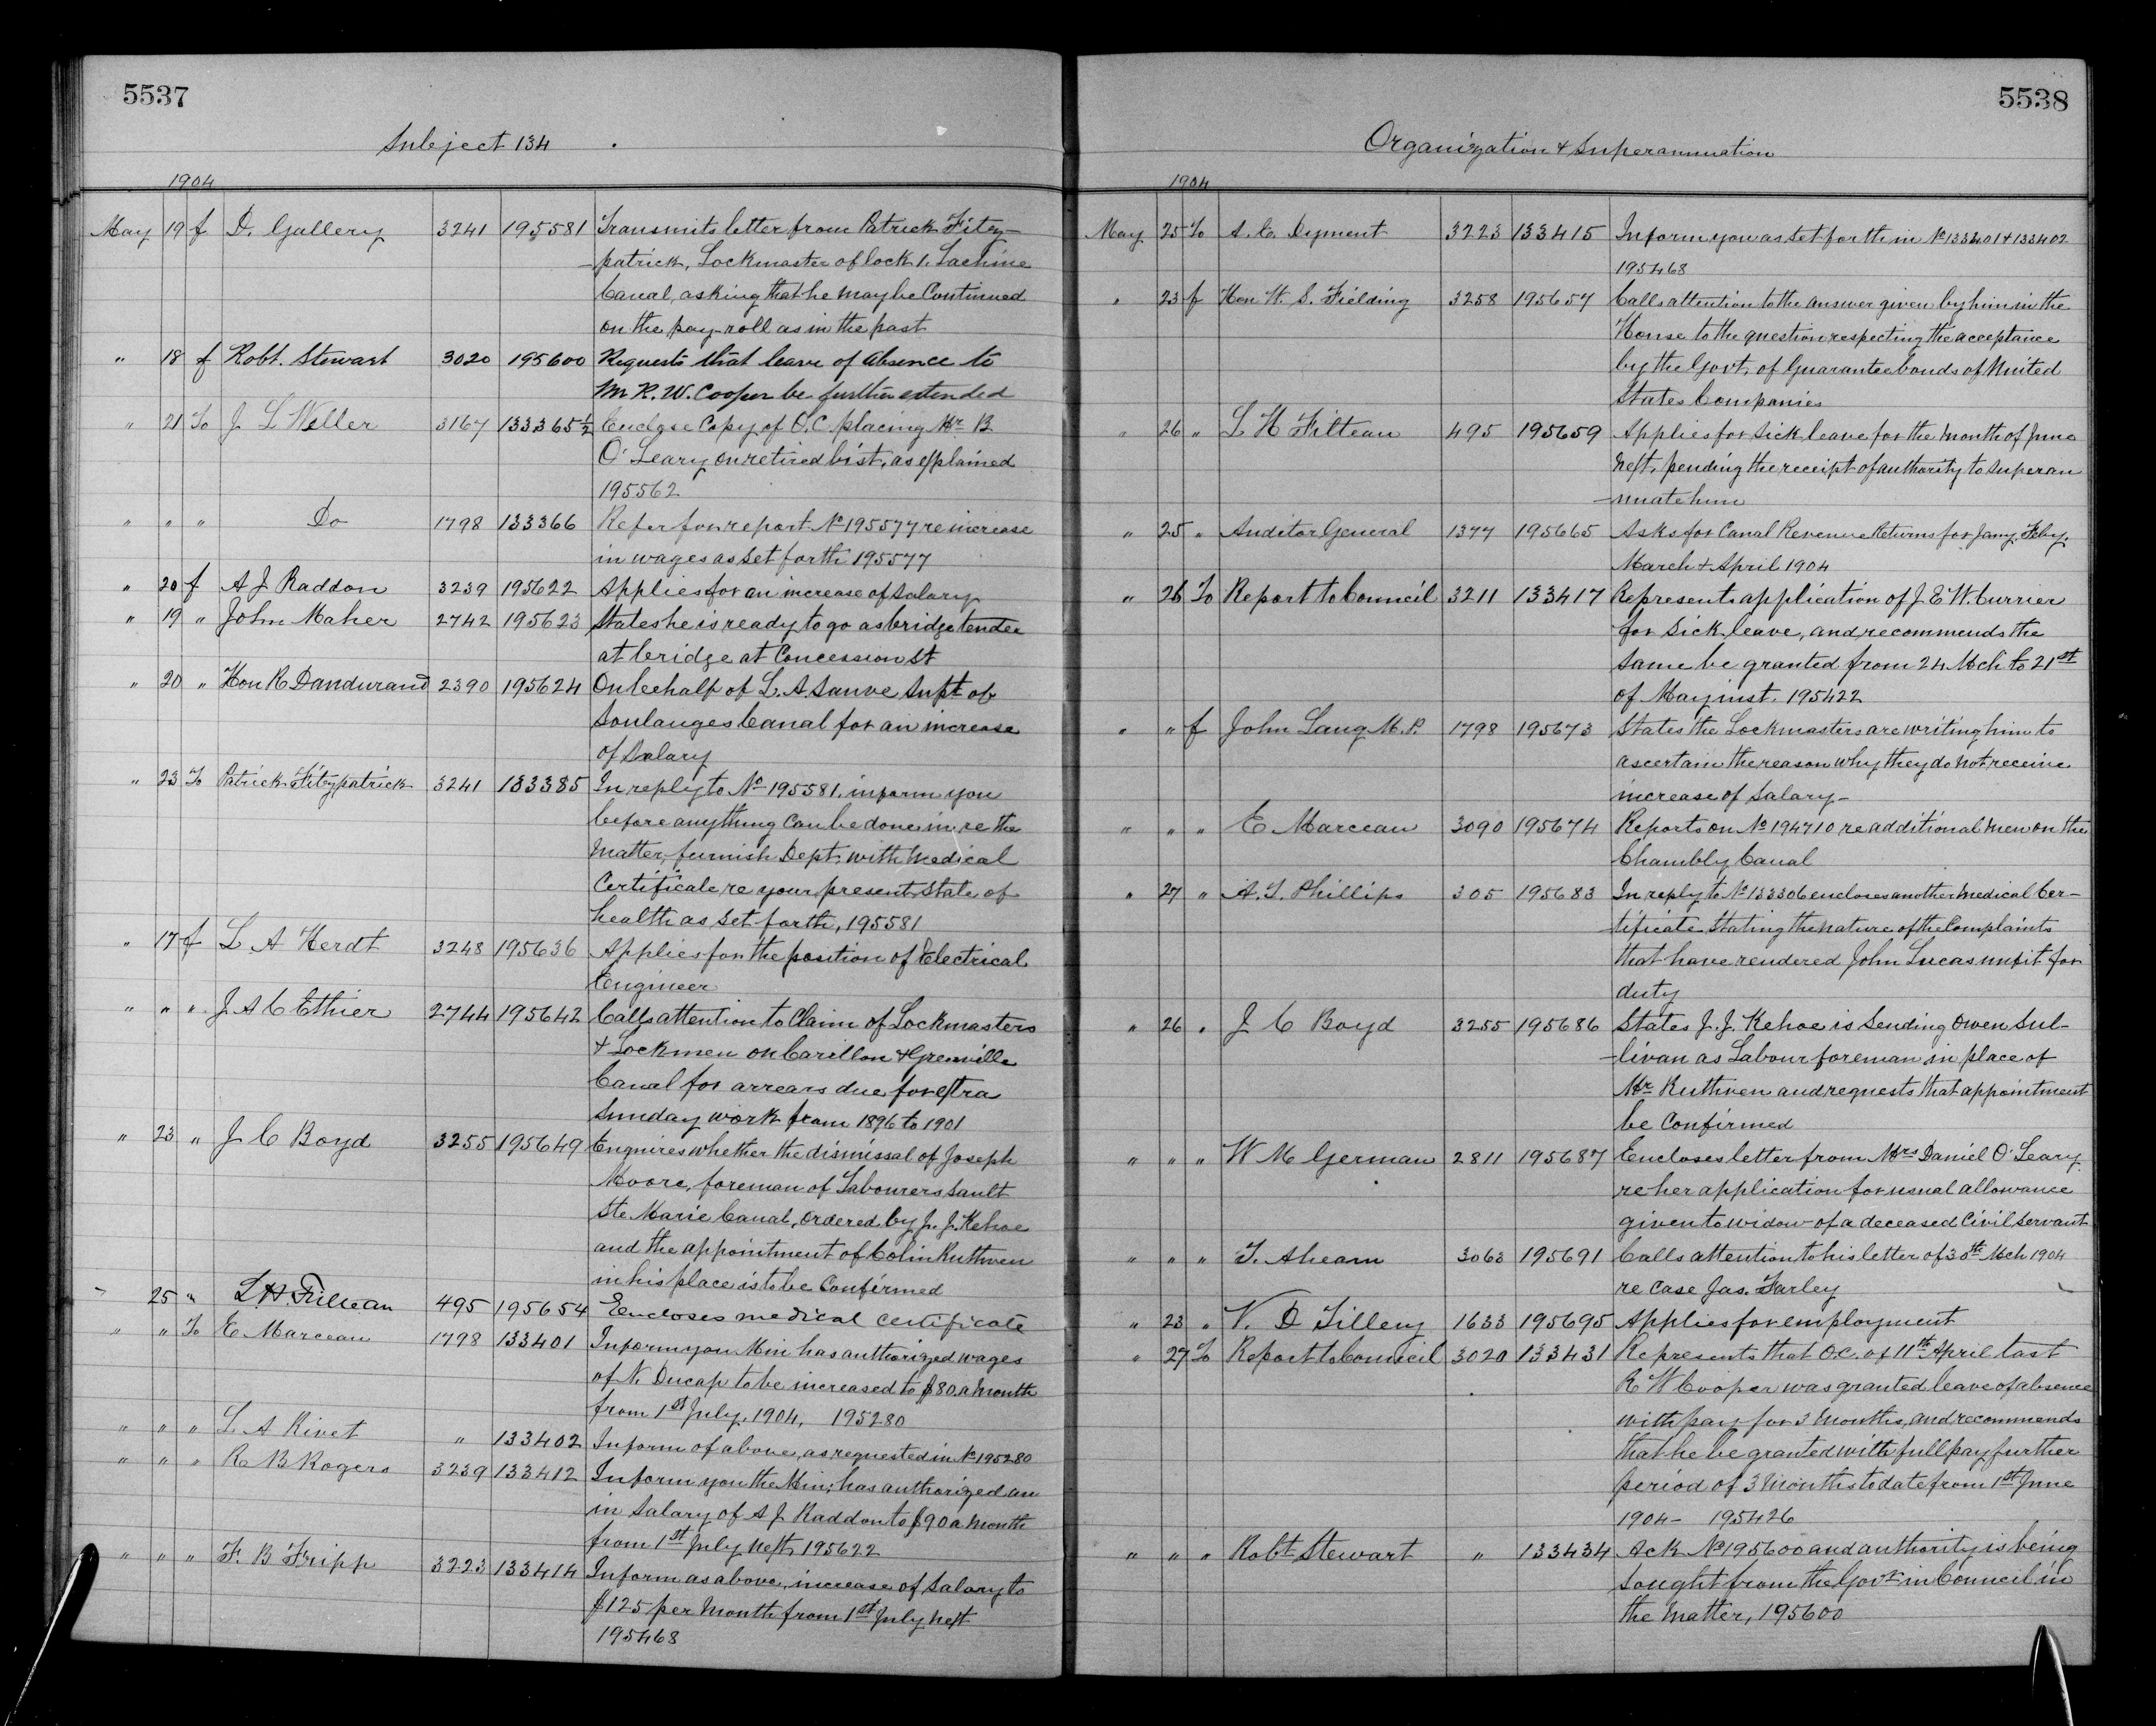 5537
Subject 134
1904
May 19 f D. Gallery 3241 195581 Transmits letter from Patrick Fitz-
-patrick, Lockmaster of lock 1. Lachine
Canal, asking that he may be Continued
on the pay-roll as in the past
" 18 f Robt. Stewart 3020 195600 Requests that leave of absence to
Mr R. W. Cooper be further extended
" 21 To J L Weller 3167 133365½ Enclose Copy of O.C. placing Mr B
O'Leary on retired list, as explained
195562
" " " Do 1798 133366 Refer for report No 195577 re increase
in wages as set forth 195577
" 20 f A J Raddon 3239 195622 Applies for an increase of salary
" 19 " John Maher 2742 195623 States he is ready to go as bridge tender
at bridge at Concession St
" 20 " Hon R Dandurand 2390 195624 On behalf of L. A. Sauve Supt of
Soulanges Canal for an increase
of Salary
" 23 To Patrick Fitzpatrick 3241 133385 In reply to No 195581. inform you
before anything Can be done in re the
Matter, furnish Dept. with Medical
Certificate re your present state of
health as set forth, 195581
" 17 f L. A Herdt 3248 195636 Applies for the position of Electrical
Engineer
" " " J A C Ethier 2744 195642 Calls attention to Claim of Lockmasters
& Lockmen on Carillon & Grenville
Canal for arrears due for extra
Sunday work from 1896 to 1901
" 23 " J C Boyd 3255 195649 Enquires whether the dismissal of Joseph
Moore, foreman of Labourers Sault
Ste Marie Canal, ordered by J. J. Kehoe
and the appointment of Colin Ruthven
in his place is to be Confirmed
" 25 " L. H. Filteau 495 195654 Encloses medical certificate
" " To E. Marceau 1798 133401 Inform you Min has authorized wages
of N. Ducap to be increased to $80 a Month
from 1st July. 1904. 195280
" " " L. A Rivet " 133402 Inform of above, as requested in No 195280
" " " R B Rogers 3239 133412 Inform you the Min; has authorized an
in Salary of A J. Raddon to $90 a Month
from 1st July next, 195622
" " " F. B Fripp 3223 133414 Inform as above, increase of Salary to
$125 per Month from 1st July next
195468
5538
Organization & Superannuation
1904
May 25 To A. E. Dyment 3223 133415 Inform you as set forth in No 133401 & 133402
195468
" 23 f Hon W. S. Fielding 3258 195657 Calls attention to the answer given by him in the
House to the question respecting the acceptance
by the Govt. of Guarantee bonds of United
States Companies
" 26 " L H Filteau 495 195659 Applies for Sick leave for the month of June
next, pending the receipt of authority to superan
-nuate him
" 25 " Auditor General 1377 195665 Asks for Canal Revenue Returns for Jany. Feby.
March & April 1904
" 26 To Report to Council 3211 133417 Represents application of J E W. Currier
for Sick leave, and recommends the
Same be granted from 24 Mch to 21st
of May inst. 195422
" " f John Lang M.P. 1798 195673 States the Lockmasters are writing him to
ascertain the reason why they do not receive
increase of Salary-
" " " E Marceau 3090 195674 Reports on No 194710 re additional men on the
Chambly Canal
" 27 " A. T. Phillips 305 195683 In reply to No 133306 encloses another Medical Cer-
-tificate, Stating the nature of the Complaints
that have rendered John Lucas unfit for
duty
" 26 " J C Boyd 3255 195686 States J. J. Kehoe is Sending Owen Sul-
-livan as Labour foreman in place of
Mr Ruthven and requests that appointment
be Confirmed
" " " W M German 2811 195687 Encloses letter from Mrs Daniel O'Leary
re her application for usual allowance
given to widow of a deceased Civil servant
" " " T. Ahearn 3063 195691 Calls attention to his letter of 30th Mch 1904
re Case Jas. Farley
" 23 " V. D Tilley 1633 195695 Applies for employment
" 27 To Report to Council 3020 133431 Represents that O.C. of 11th April last
R W Cooper was granted leave of absence
with pay for 3 Months, and recommends
that he be granted with full pay further
period of 3 Months to date from 1st June
1904- 195426
" " " Robt. Stewart " 133434 Ack No 195600 and authority is being
sought from the Govr. in Council in
the Matter, 195600